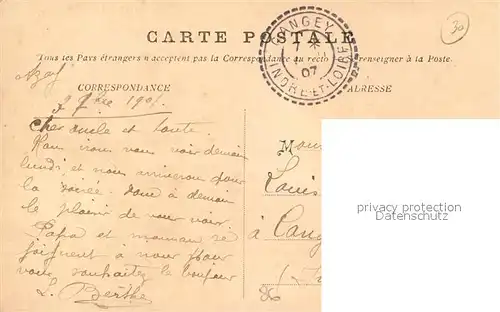 30
CARTE POSTALE
CANGEY
7
07
INDRE-ET-LOIRE
Tous les Pays étrangers n'acceptent pas la Correspondance au recto se renseigner à la Poste.
Azay
CORRESPONDANCE
ADRESSE
7bre 1907.
Cher oncle et tante.
Nous irons vous voir demain
lundi, et nous arriverons pour
la soirée. donc à demain
le plaisir de vous voir.
Papa et maman se
joignent à nous pour
vous souhaiter le bonjour
L. Berthe
Louis
à Cang
86
privacy protection
Datenschutz